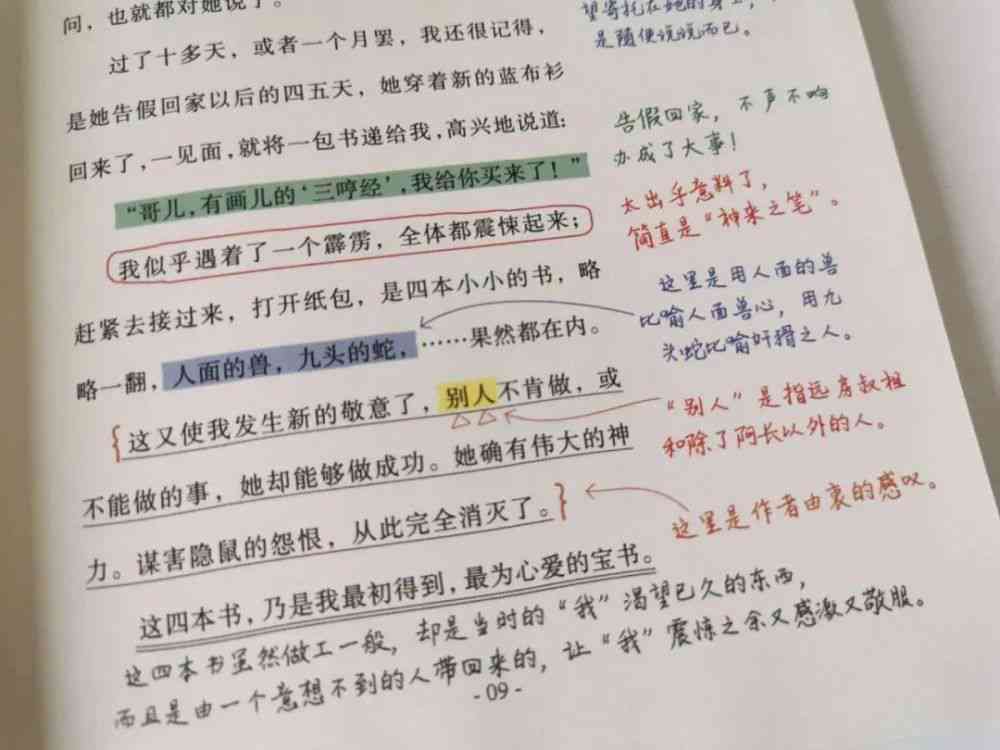 问，也就都对她说了。
过了十多天，或者一个月罢，我还很记得，
是她告假回家以后的四五天，她穿着新的蓝布衫
回来了，一见面，就将一包书递给我，高兴地说道：
“哥儿，有画儿的‘三哼经’，我给你买来了！”
我似乎遇着了一个霹雳，全体都震悚起来；
赶紧去接过来，打开纸包，是四本小小的书，略
略一翻，人面的兽，九头的蛇，……果然都在内。
这又使我发生新的敬意了，别人不肯做，或
不能做的事，她却能够做成功。她确有伟大的神
力。谋害隐鼠的怨恨，从此完全消灭了。
这四本书，乃是我最初得到，最为心爱的宝书。
这四本书虽然做工一般，却是当时的“我”渴望已久的东西，
而且是由一个意想不到的人带回来的，让“我”震惊之余又感激又敬服。
- 09 -
望寄托在她的身上，
是随便说说而已。
告假回家，不声不响
办成了大事！
太出乎意料了，
简直是“神来之笔”。
这里是用人面的兽
比喻人面兽心，用九
头蛇比喻奸猾之人。
“别人”是指远房叔祖
和除了阿长以外的人。
这里是作者由衷的感叹。